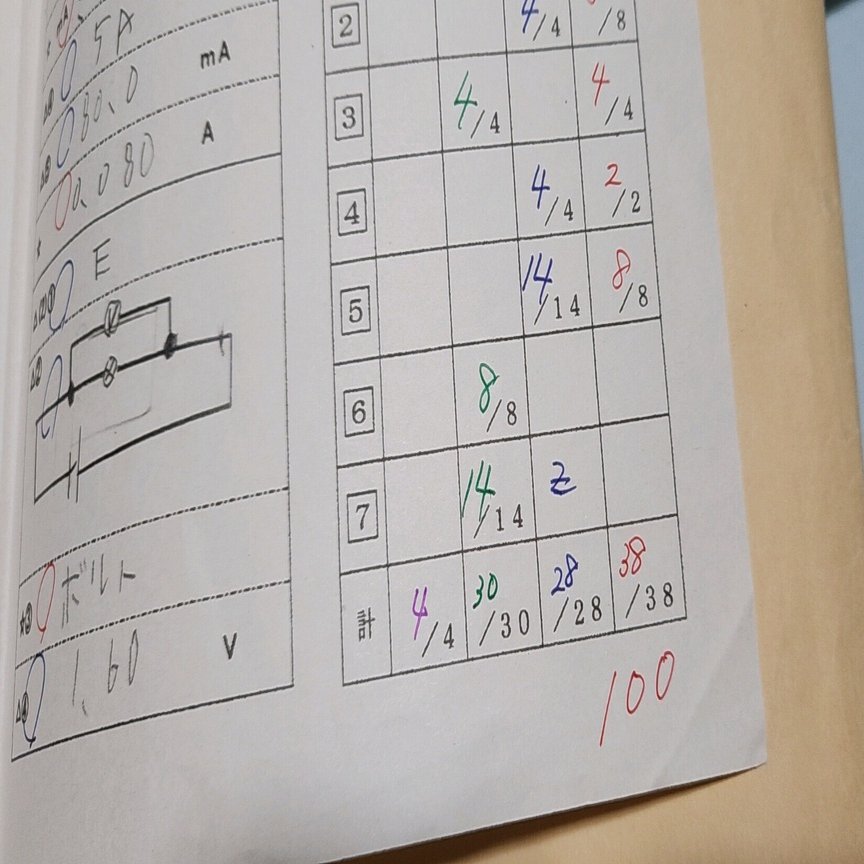 5A
80.0 mA
0.080 A
E
V
ボルト
1.60 V
2 4/4 /8
3 4/4 4/4
4 4/4 2/2
5 14/14 8/8
6 8/8
7 14/14 Z
計 4/4 30/30 28/28 38/38
100